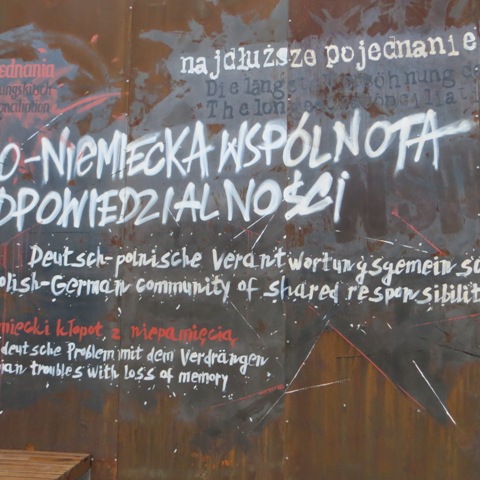 najdłuższe pojednanie
Die längste
The
ednania
ungskitsch
onciliation
O-NIEMIECKA WSPÓLNOTA
DPOWIEDZIALNOŚCI
Deutsch-polnische Verantwortungsgemeinsc
olish-German community of shared responsibilit
miecki kłopot z niepamięcią
deutsche Problem mit dem Verdrängen
an troubles with loss of memory